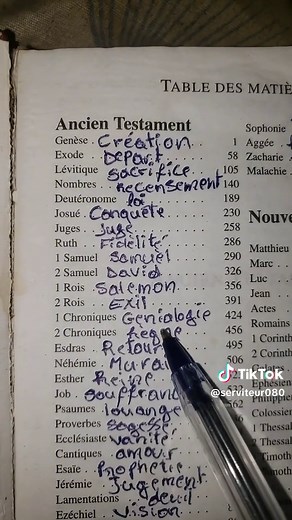 TABLE DES MATIÈ
Ancien Testament
Genèse . Création . . . . 1
Exode . Départ . . . . 58
Lévitique sacrifice . . . 105
Nombres . recensement 140
Deutéronome loi . . . . 189
Josué . Conquête . . . . 230
Juges . Juge . . . . 258
Ruth . Fidélité . . . . 286
1 Samuel Samuel . . . . 290
2 Samuel David . . . . 326
1 Rois . Salemon . . . . 356
2 Rois . Exil . . . . 391
1 Chroniques Géniologie 424
2 Chroniques Règne . . . 456
Esdras . Retour . . 495
Néhémie . Murail
Esther . Reine
Job . souffranc
Psaumes louange
Proverbes sagesse
Ecclésiaste vanité
Cantiques . amour
Esaïe . . Prophétie
Jérémie . Jugement
Lamentations deuil
Ezéchiel . Vision
Sophonie
Aggée
Zacharie
Malachie .
Nouve
Matthieu
Marc
Luc
Jean
Actes
Romains
1 Corinth
2 Corint
Ephésien
Philippi
Coloss
1 Thessal
2 Thessal
Timoth
TikTok
@serviteur080